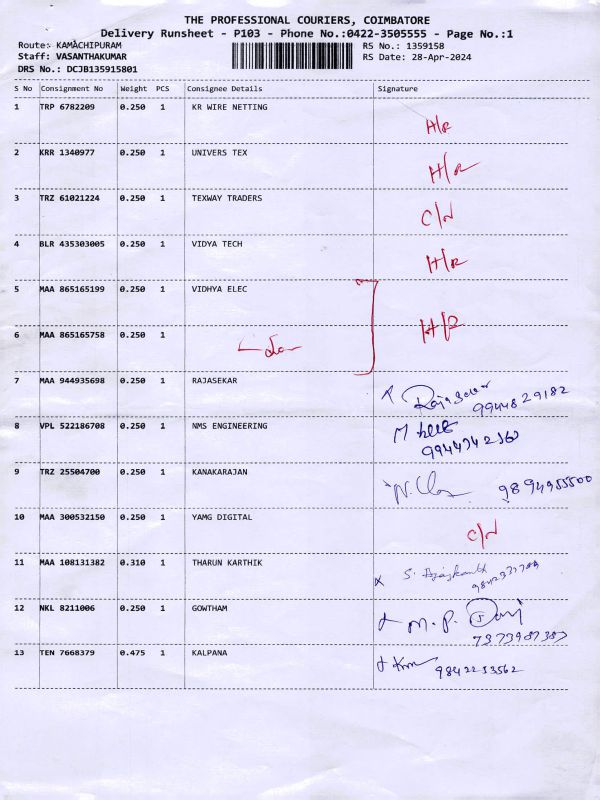 THE PROFESSIONAL COURIERS, COIMBATORE
Delivery Runsheet - P103 - Phone No.:0422-3505555 - Page No.:1
Route: KAMACHIPURAM RS No.: 1359158
Staff: VASANTHAKUMAR RS Date: 28-Apr-2024
DRS No.: DCJB135915801
S No Consignment No Weight PCS Consignee Details Signature
1 TRP 6782209 0.250 1 KR WIRE NETTING
H/R
2 KRR 1340977 0.250 1 UNIVERS TEX
H/R
3 TRZ 61021224 0.250 1 TEXWAY TRADERS
C/N
4 BLR 435303005 0.250 1 VIDYA TECH
H/R
5 MAA 865165199 0.250 1 VIDHYA ELEC
H/R
6 MAA 865165758 0.250 1
7 MAA 944935698 0.250 1 RAJASEKAR
Rajasekar
9944829182
8 VPL 522186708 0.250 1 NMS ENGINEERING
9 TRZ 25504700 0.250 1 KANAKARAJAN
9894955500
10 MAA 300532150 0.250 1 YAMG DIGITAL
C/N
11 MAA 108131382 0.310 1 THARUN KARTHIK
12 NKL 8211006 0.250 1 GOWTHAM
M. P.
13 TEN 7668379 0.475 1 KALPANA
9842253562